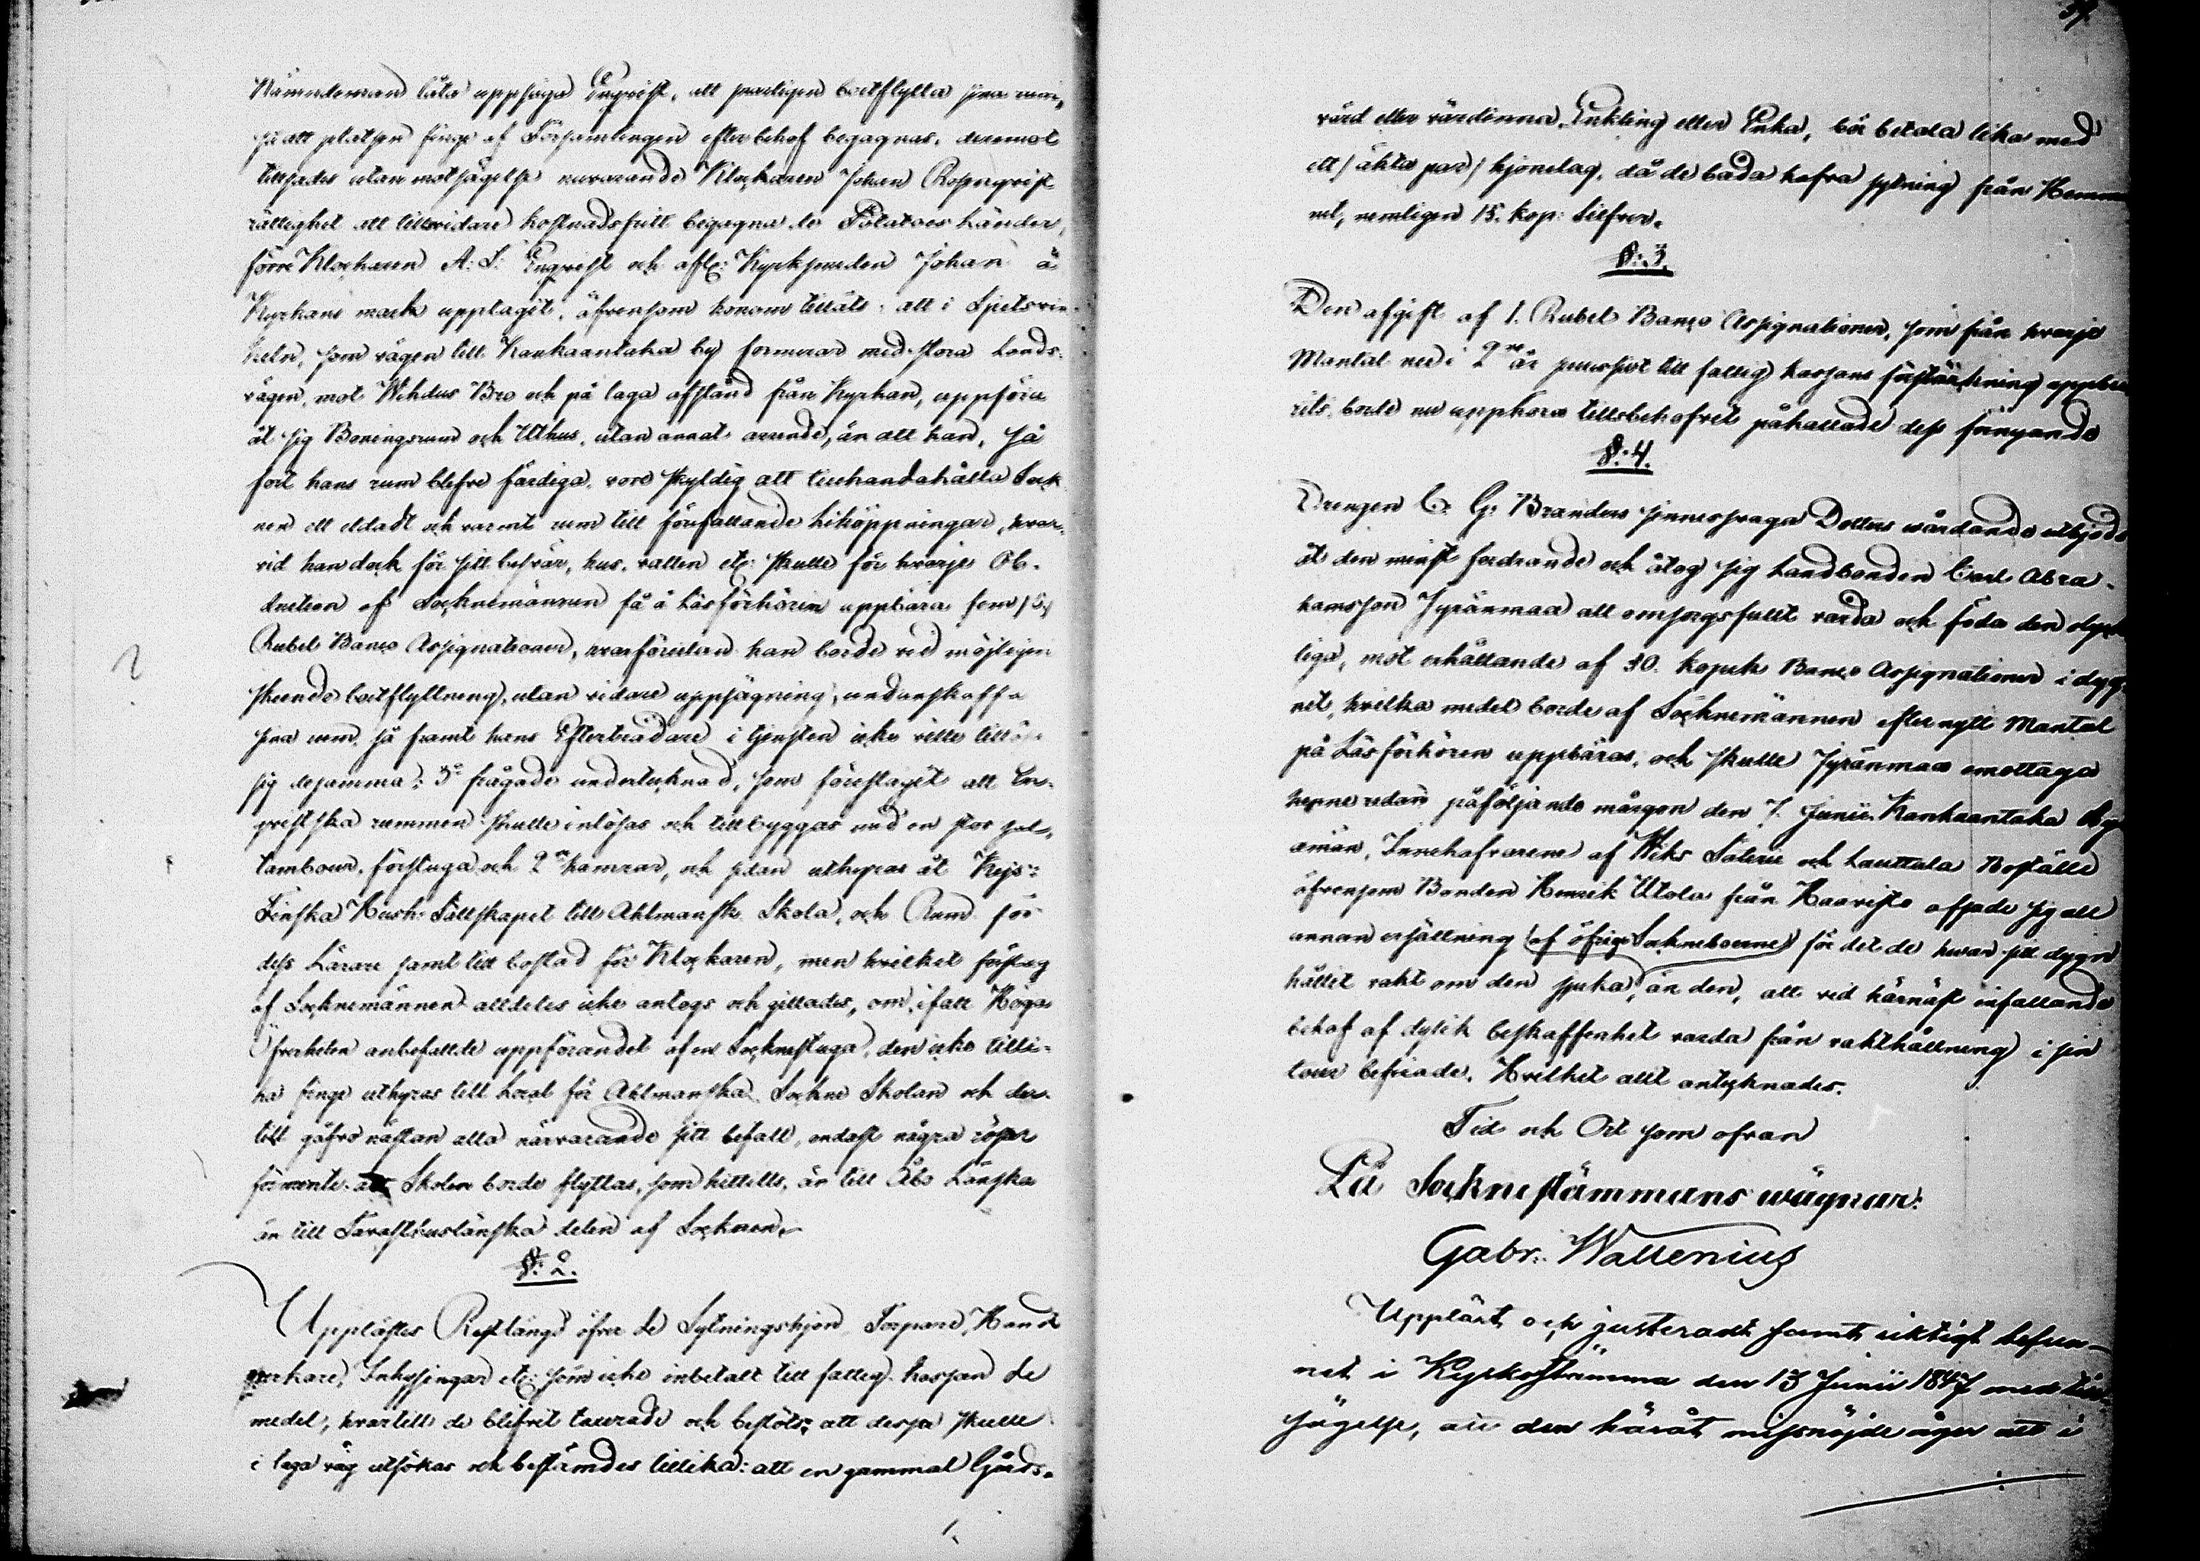 Nämndeman låta uppsäga Engvist, att sjelfvan bortflytta sina rum,
så att platsen finge af Församlingen efter behof begagnas, deremot
tillsades utan motsägelse nuvarande Klockaren Johan Rosenqvist
rättighet att tillsvidare kostnadsfritt begagna de Potatoes länder,
förre Klockaren A: L: Engvist och afl: Kyrkjunden Johan å
Kyrkans mark upptagit, äfvensom honom tilläts att i Spetsvin-
keln, som vägen till Kankaantaka by formerar med stora Lands-
vägen, mot Wihdus Bro och på laga afstånd från Kyrkan, uppföra
åt sig Boningsrum och Uthus, utan annat arende, än att han, så
fort hans rum blefve färdiga, vore skyldig att tillhandahålla Sock
nen ett eldadt och varmt rum till förefallande Liköppningar, hvar-
vid han dock för sitt besvär, hus, vatten etc: skulle för hvarje Ob-
duction af Socknemännen få å Läsförhören uppbära fem /5/
Rubel Banco Assignationer, hvarförutan han borde vid möjligen
skeende bortflyttning, utan vidare uppsägning, undanskaffa
sina rum, så framt hans Efterträdare i tjensten icke ville tillösa
sig desamma: 3o frågade undertecknad, som föreslagit att En-
qvistska rummen skulle inlösas och tillbyggas med en stor sal,
tambour, förstuga och 2ne kamrar, och sedan uthyras åt Kejs:
Finska Hush: Sällskapet till Ahlmansk Skola, och Rum för
dess Lärare samt till bostad för Klockaren, men hvilket förslag
af Socknemännen alldeles icke antogs och gillades, om, ifall Höga
Öfverheten anbefallde uppförandet af en Sockenstuga, den icke tilli-
ka finge uthyras till Local för Ahlmanska Sockne Skolan och der-
till gåfvo nästan alla närvarande sitt bifall, endast några röster
förmente att Skolan borde flyttas, som hittills, än till Åbo Länska
än till Tavasthuslänska delen af Socknen.
§: 2.
Upplästes Restlängd öfver de Sytningshjon, Torpare, Handt
verkare, Inhysingar etc: som icke inbetalt till fattig kassan de
medel, hvartill de blifvit taxerade och beslöts, att dessa skulle
i laga väg utsökas och bestämdes tillika: att en gammal Gårds-
värd eller värdinna, Enkling eller Enka, bör betala lika med
ett / äkta par / hjonelag, då de båda hafva sytning från Hemma
net, nemligen 15. kop: Silfver.
§: 3.
Den afgift af 1. Rubel Banco Assignationer, som från hvarje
Mantal nu i 2ne år successivt till fattig kassans förstärkning uppbu
rits, borde nu upphöra tillsbehofvet påkallade dess förnyande
§: 4.
Drengen C: G: Branders sinnessvaga Dotters vårdande utbjöds
åt den minst fordrande och åtog sig Landbonden Carl Abra-
hamsson Jyränmaa att omsorgsfullt vårda och föda den olyck
liga, mot erhållande af 30. kopek Banco Assignationer i dyg-
net, hvilka medel borde af Socknemännen efter nytt Mantal
på Läsförhören uppbäras, och skulle Jyränmaa emottaga
henne redan påföljande morgon den 7. Junii. Kankaantaka By
amän, Innehafvarene af Wiks Säterie och Lauttala Boställe
äfvensom Bonden Henrik Utola från Haavisto afsade sig all
annan ersättning (af öfrige Sockneboerne) för det de hvar sitt dygn
hållit vakt om den sjuka, än den, att vid härnäst infallande
behof af dylik beskaffenhet varda från vakthållning i sin
tour befriade. Hvilket allt antecknades.
Tid och Ort som ofvan
På Socknestämmans wägnar:
Gabr: Wallenius
Uppläst och justeradt samt riktigt befun-
net i Kyrkostämma den 13 Junii 1847 med till
sägelse, att den häråt missnöjde äger att i